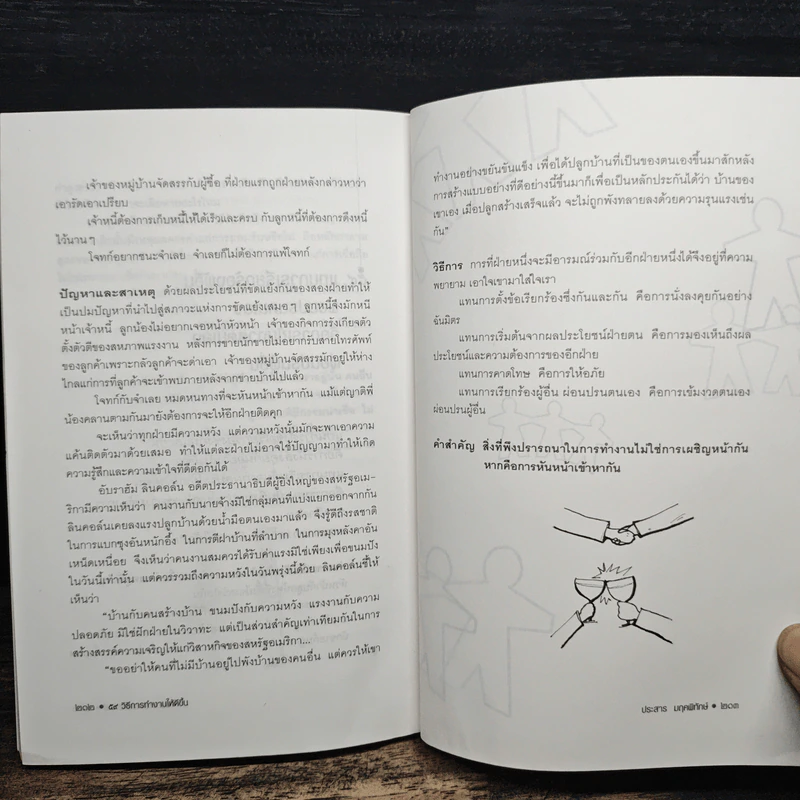 เจ้าของหมู่บ้านจัดสรรกับผู้ซื้อ ที่ฝ่ายแรกถูกฝ่ายหลังกล่าวหาว่า
เอารัดเอาเปรียบ
เจ้าหนี้ต้องการเก็บหนี้ให้ได้เร็วและครบ กับลูกหนี้ที่ต้องการดึงหนี้
ไว้นานๆ
โจทก์อยากชนะจำเลย จำเลยก็ไม่ต้องการแพ้โจทก์
ปัญหาและสาเหตุ ด้วยผลประโยชน์ที่ขัดแย้งกันของสองฝ่ายทำให้
เป็นปมปัญหาที่นำไปสู่สภาวะแห่งการขัดแย้งเสมอๆ ลูกหนี้จึงมักหนี
หน้าเจ้าหนี้ ลูกน้องไม่อยากเจอหน้าหัวหน้า เจ้าของกิจการรังเกียจตัว
ตั้งตัวตีของสหภาพแรงงาน หลังการขายนักขายไม่อยากรับสายโทรศัพท์
ของลูกค้าเพราะกลัวลูกค้าจะด่าเอา เจ้าของหมู่บ้านจัดสรรมักอยู่ให้ห่าง
ไกลแก่การที่ลูกค้าจะเข้าพบภายหลังจากขายบ้านไปแล้ว
โจทก์กับจำเลย หมดหนทางที่จะหันหน้าเข้าหากัน แม้แต่ญาติพี่
น้องคลานตามกันมายังต้องการจะให้อีกฝ่ายติดคุก
จะเห็นว่าทุกฝ่ายมีความหวัง แต่ความหวังนั้นมักจะพาเอาความ
แค้นติดตัวมาด้วยเสมอ ทำให้แต่ละฝ่ายไม่อาจใช้ปัญญามาทำให้เกิด
ความรู้สึกและความเข้าใจที่ดีต่อกันได้
อับราฮัม ลินคอล์น อดีตประธานาธิบดีผู้ยิ่งใหญ่ของสหรัฐอเม-
ริกามีความเห็นว่า คนงานกับนายจ้างมิใช่กลุ่มคนที่แบ่งแยกออกจากกัน
ลินคอล์นเคยลงแรงปลูกบ้านด้วยน้ำมือตนเองมาแล้ว จึงรู้ดีถึงรสชาติ
ในการแบกซุงอันหนักอึ้ง ในการตีฝาบ้านที่ลำบาก ในการมุงหลังคาอัน
เหน็ดเหนื่อย จึงเห็นว่าคนงานสมควรได้รับค่าแรงมิใช่เพียงเพื่อขนมปัง
ในวันนี้เท่านั้น แต่ควรรวมถึงความหวังในวันพรุ่งนี้ด้วย ลินคอล์นชี้ให้
เห็นว่า
"บ้านกับคนสร้างบ้าน ขนมปังกับความหวัง แรงงานกับความ
ปลอดภัย มิใช่ฝักฝ่ายในวิวาทะ แต่เป็นส่วนสำคัญเท่าเทียมกันในการ
สร้างสรรค์ความเจริญให้แก่วิสาหกิจของสหรัฐอเมริกา...
"ขออย่าให้คนที่ไม่มีบ้านอยู่ไปพังบ้านของคนอื่น แต่ควรให้เขา
๒๐๒ • ๕๙ วิธีการทำงานให้ดีขึ้น
ทำงานอย่างขยันขันแข็ง เพื่อได้ปลูกบ้านที่เป็นของตนเองขึ้นมาสักหลัง
การสร้างแบบอย่างที่ดีอย่างนี้ขึ้นมาก็เพื่อเป็นหลักประกันได้ว่า บ้านของ
เขาเอง เมื่อปลูกสร้างเสร็จแล้ว จะไม่ถูกพังทลายลงด้วยความรุนแรงเช่น
กัน"
วิธีการ การที่ฝ่ายหนึ่งจะมีอารมณ์ร่วมกับอีกฝ่ายหนึ่งได้จึงอยู่ที่ความ
พยายาม เอาใจเขามาใส่ใจเรา
แทนการตั้งข้อเรียกร้องซึ่งกันและกัน คือการนั่งลงคุยกันอย่าง
ฉันมิตร
แทนการเริ่มต้นจากผลประโยชน์ฝ่ายตน คือการมองเห็นถึงผล
ประโยชน์และความต้องการของอีกฝ่าย
แทนการคาดโทษ คือการให้อภัย
แทนการเรียกร้องผู้อื่น ผ่อนปรนตนเอง คือการเข้มงวดตนเอง
ผ่อนปรนผู้อื่น
คำสำคัญ สิ่งที่พึงปรารถนาในการทำงานไม่ใช่การเผชิญหน้ากัน
หากคือการหันหน้าเข้าหากัน
ประสาร มฤคพิทักษ์ • ๒๐๓